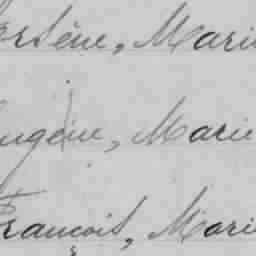 Arsène, Marie
Eugène, Marie
François, Marie